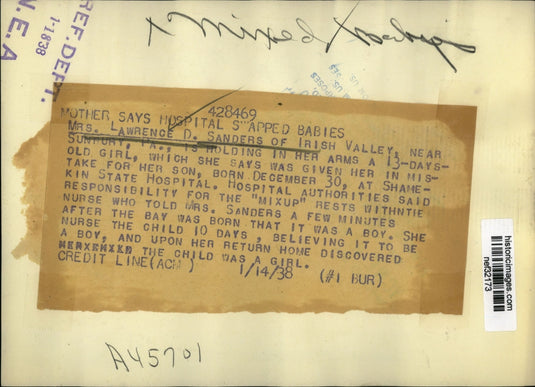 x Mixed
REF. DEPT.
1-1838
N.E.A
428469
MOTHER SAYS HOSPITAL S APPED BABIES
MRS. LAWRENCE D. SANDERS OF IRISH VALLEY, NEAR
SUNBURY, PA., IS HOLDING IN HER ARMS A 13-DAYS-
OLD GIRL, WHICH SHE SAYS WAS GIVEN HER IN MIS-
TAKE FOR HER SON, BORN DECEMBER 30, AT SHAMO-
KIN STATE HOSPITAL. HOSPITAL AUTHORITIES SAID
RESPONSIBILITY FOR THE "MIXUP" RESTS WITHNTIE
NURSE WHO TOLD MRS. SANDERS A FEW MINUTES
AFTER THE BAY WAS BORN THAT IT WAS A BOY. SHE
NURSE THE CHILD 10 DAYS, BELIEVING IT TO BE
A BOY, AND UPON HER RETURN HOME DISCOVERED
THE CHILD WAS A GIRL.
CREDIT LINE(ACM) 1/14/38 (#1 BUR)
A45701
historicimages.com
nef32173